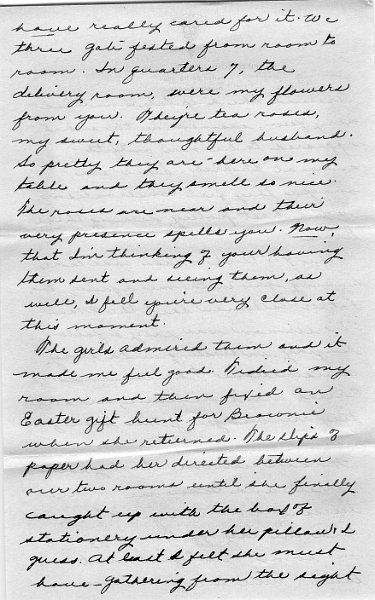 have really cared for it. We
three gab-fested from room to
room. In quarters 7, the
delivery room, were my flowers
from you. They're tea roses,
my sweet, thoughtful husband.
So pretty they are here on my
table and they smell so nice.
The roses are near and their
very presence spells you. Now,
that I'm thinking of your having
them sent and seeing them, as
well, I fell you're very close at
this moment.
The girls admired them and it
made me feel good. Tidied my
room and then fixed an
Easter gift hunt for Brownie
when she returned. The slips of
paper had her directed between
our two rooms until she finally
caught up with the box of
stationery under her pillow, I
guess. At least I felt she must
have - gathering from the sight